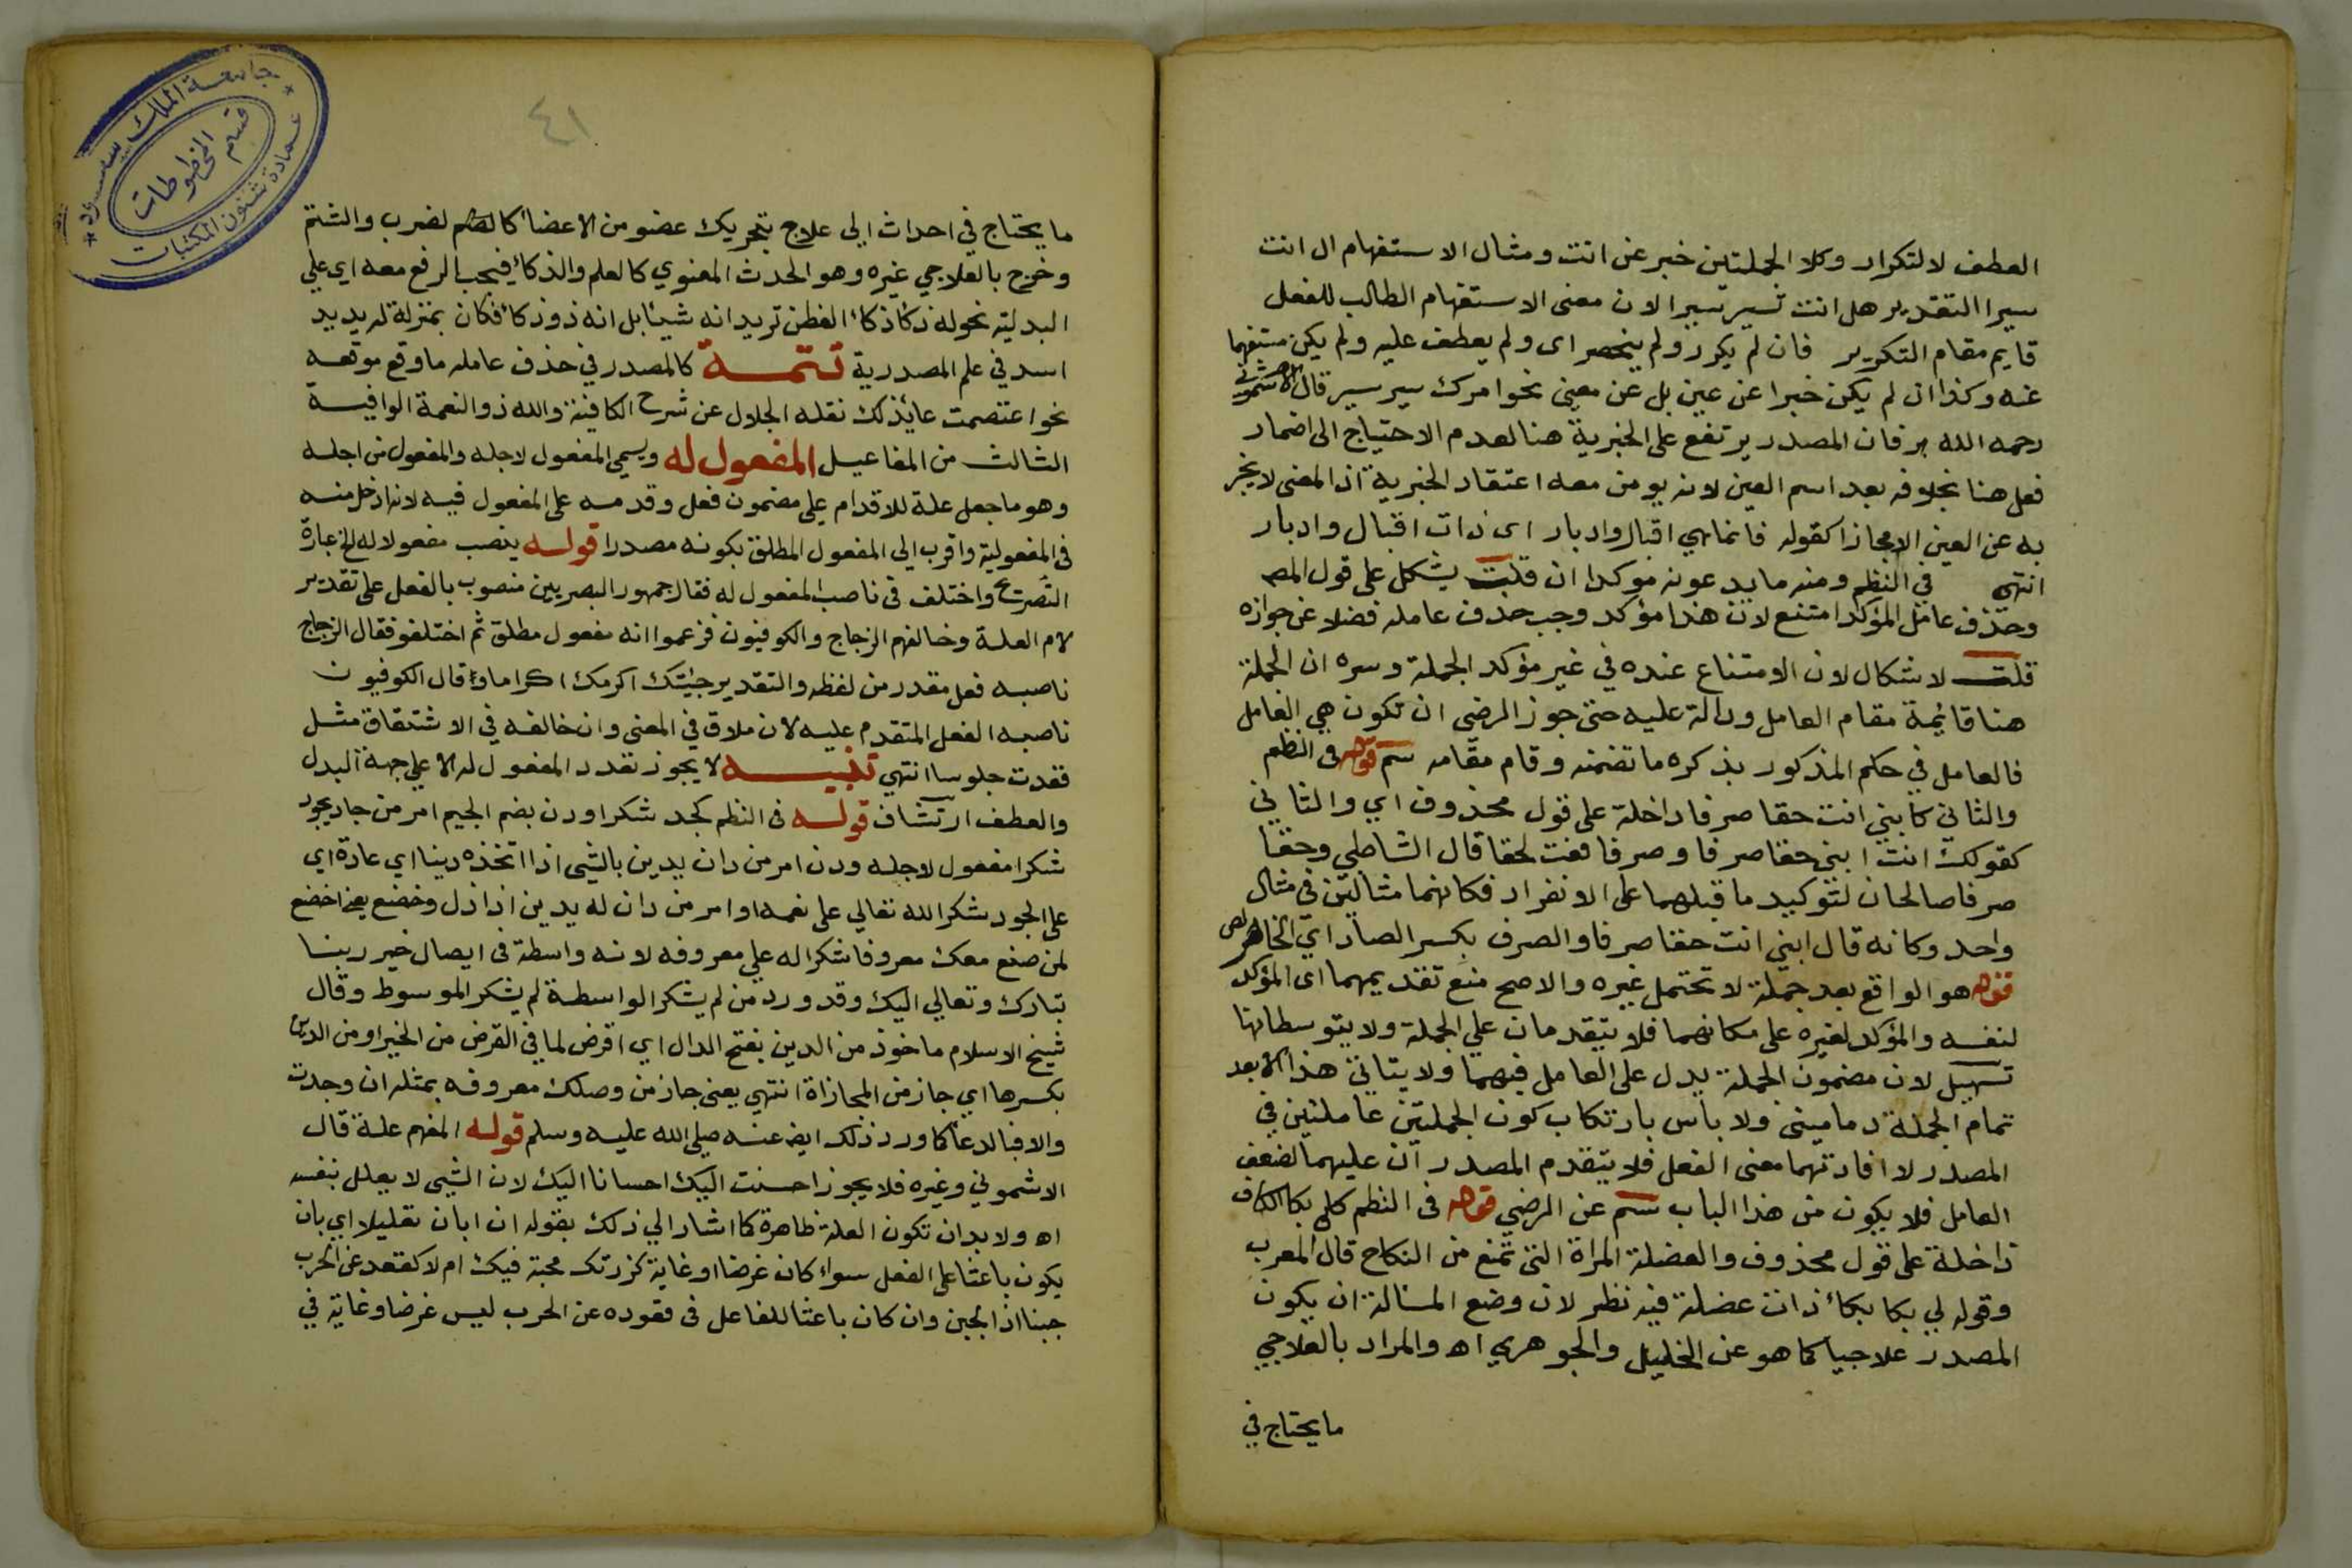 العطف لا لتكرار وكلا الجملتين خبر عن انت ومثال الاستفهام ال انت
سيرا التقدير هل انت تسير سيرا لان معنى الاستفهام الطالب للفعل
قايم مقام التكرير فان لم يكرر ولم ينحصر اى ولم يعطف عليه ولم يكن مستفهما
عنه وكذا ان لم يكن خبرا عن عين بل عن معنى نحوا مرك سير سير قال الاشموني
رحمه الله فان المصدر يرتفع على الخبرية هنا لعدم الاحتياج الى اضمار
فعل هنا بخلافه بعد اسم العين لانه يومن معه اعتقاد الخبرية اذ المعنى لا يخبر
به عن العين الا مجازا كقوله فانما هي اقبال وادبار اى ذات اقبال وادبار
انتهى في النظم ومنه ما يدعونه موكدا ان قلت يشكل على قول المص
وحذف عامل المؤكد امتنع لان هذا مؤكد وجب حذف عامله فضلا عن جوازه
قلت لا شكال لان الامتناع عنده في غير مؤكد الجملة وسره ان الجملة
هنا قائمة مقام العامل ودالة عليه حتى جوز الرضى ان تكون هي العامل
فالعامل في حكم المذكور بذكره ما تضمنه وقام مقامه سم قوله فى النظم
والثانى كابني انت حقا صرفا داخلة على قول محذوف اي والثاني
كقولك انت ابنى حقا صرفا وصرفا نعت لحقا قال الشاطبي وحقا
صرفا صالحان لتوكيد ما قبلهما على الانفراد فكانهما مثالين في مثال
واحد وكانه قال ابنى انت حقا صرفا والصرف بكسر الصاد اي الخالص
قوله هو الواقع بعد جملة لا تحتمل غيره والاصح منع تقديمهما اى المؤكد
لنفسه والمؤكد لغيره على مكانهما فلا يتقدمان على الجملة ولا يتوسطانها
تسهيل لان مضمون الجملة يدل على العامل فيهما ولا يتاتى هذا الا بعد
تمام الجملة دمامينى ولا باس بارتكاب كون الجملتين عاملتين في
المصدر لا افادتهما معنى الفعل فلا يتقدم المصدر ان عليهما لضعف
العامل فلا يكون من هذا الباب سم عن الرضي قوله فى النظم كلي بكا الكاف
داخلة على قول محذوف والعضلة المراة التى تمنع من النكاح قال المعرب
وقوله لي بكا بكاء ذات عضلة فيه نظر لان وضع المسالة ان يكون
المصدر علاجيا كما هو عن الخليل والجوهري اه والمراد بالعلاجي
ما يحتاج في
٤١
جامعة الملك سعود
قسم المخطوطات
عمادة شئون المكتبات
ما يحتاج في احداث الى علاج بتحريك عضو من الاعضاء كالضرب والشتم
وخرج بالعلاجي غيره وهو الحدث المعنوي كالعلم والذكاء فيجب الرفع معه اي على
البدلية نحو له ذكاء ذكاء الفطن تريد انه شيئا بل انه ذو ذكاء فكان بمنزلة له يد يد
اسد في علم المصدرية تتمة كالمصدر في حذف عامله ما وقع موقعه
نحوا عتصمت عائذ لك نقله الجلال عن شرح الكافية والله ذو النعمة الوافية
الثالث من المفاعيل المفعول له ويسمى المفعول لاجله والمفعول من اجله
وهو ما جعل علة للاقدام على مضمون فعل وقدمه على المفعول فيه لانه ادخل منه
فى المفعولية واقرب الى المفعول المطلق بكونه مصدرا قوله ينصب مفعولا له الخ عبارة
التصريح واختلف فى ناصب المفعول له فقال جمهور البصريين منصوب بالفعل على تقدير
لام العلة وخالفهم الزجاج والكوفيون فزعموا انه مفعول مطلق ثم اختلفو فقال الزجاج
ناصبه فعل مقدر من لفظه والتقدير جئتك اكرمك اكراما وقال الكوفيون
ناصبه الفعل المتقدم عليه لان ملاق في المعنى وان خالفه في الاشتقاق مثل
قعدت جلوسا انتهي تنبيه لا يجوز تعدد المفعول له الا على جهة البدل
والعطف ارتشاف قوله فى النظم كجد شكرا ودن بضم الجيم امر من جاد يجود
شكرا مفعول لاجله ودن امر من دان يدين بالشيى اذا اتخذه دينا اي عادة اي
على الجود شكرا لله تعالي على نعمه او امر من دان له يدين اذا ذل وخضع يعنى اخضع
لمن صنع معك معروفا شكرا له علي معروفه لانه واسطة فى ايصال خير ربنا
تبارك وتعالي اليك وقد ورد من لم يشكر الواسطة لم يشكر الموسوط وقال
شيخ الاسلام ماخوذ من الدين بفتح الدال اي اقرض لما فى القرض من الخير او من الدين
بكسرها اي جاز من المجازاة انتهي يعنى جاز من وصلك معروفه بمثله ان وجدت
والا فبالدعاء كما ورد ذلك ايض عنه صلى الله عليه وسلم قوله المفهم علة قال
الاشموني وغيره فلا يجوز احسنت اليك احسانا اليك لان الشيى لا يعلل بنفسه
اه ولا بد ان تكون العلة ظاهرة كما اشار الي ذلك بقوله ان ابان تعليلا اي بان
يكون باعثا على الفعل سواء كان غرضا او غاية كزرتك محبة فيك ام لا كقعد عن الحرب
جبنا اذ الجبن وان كان باعثا للفاعل فى قعوده عن الحرب ليس غرضا وغاية في